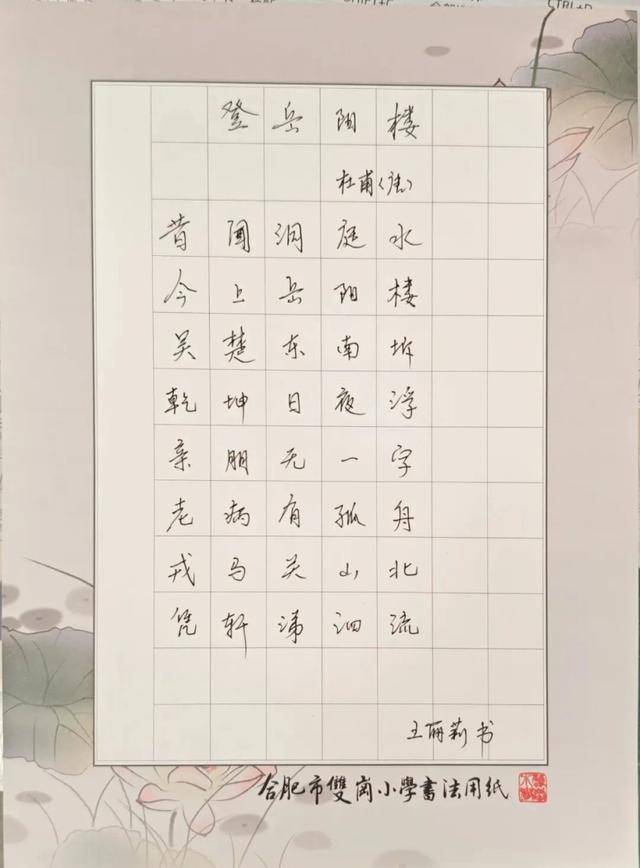 登岳阳楼
杜甫（唐）
昔闻洞庭水
今上岳阳楼
吴楚东南坼
乾坤日夜浮
亲朋无一字
老病有孤舟
戎马关山北
凭轩涕泗流
王丽莉书
合肥市雙崗小學書法用紙